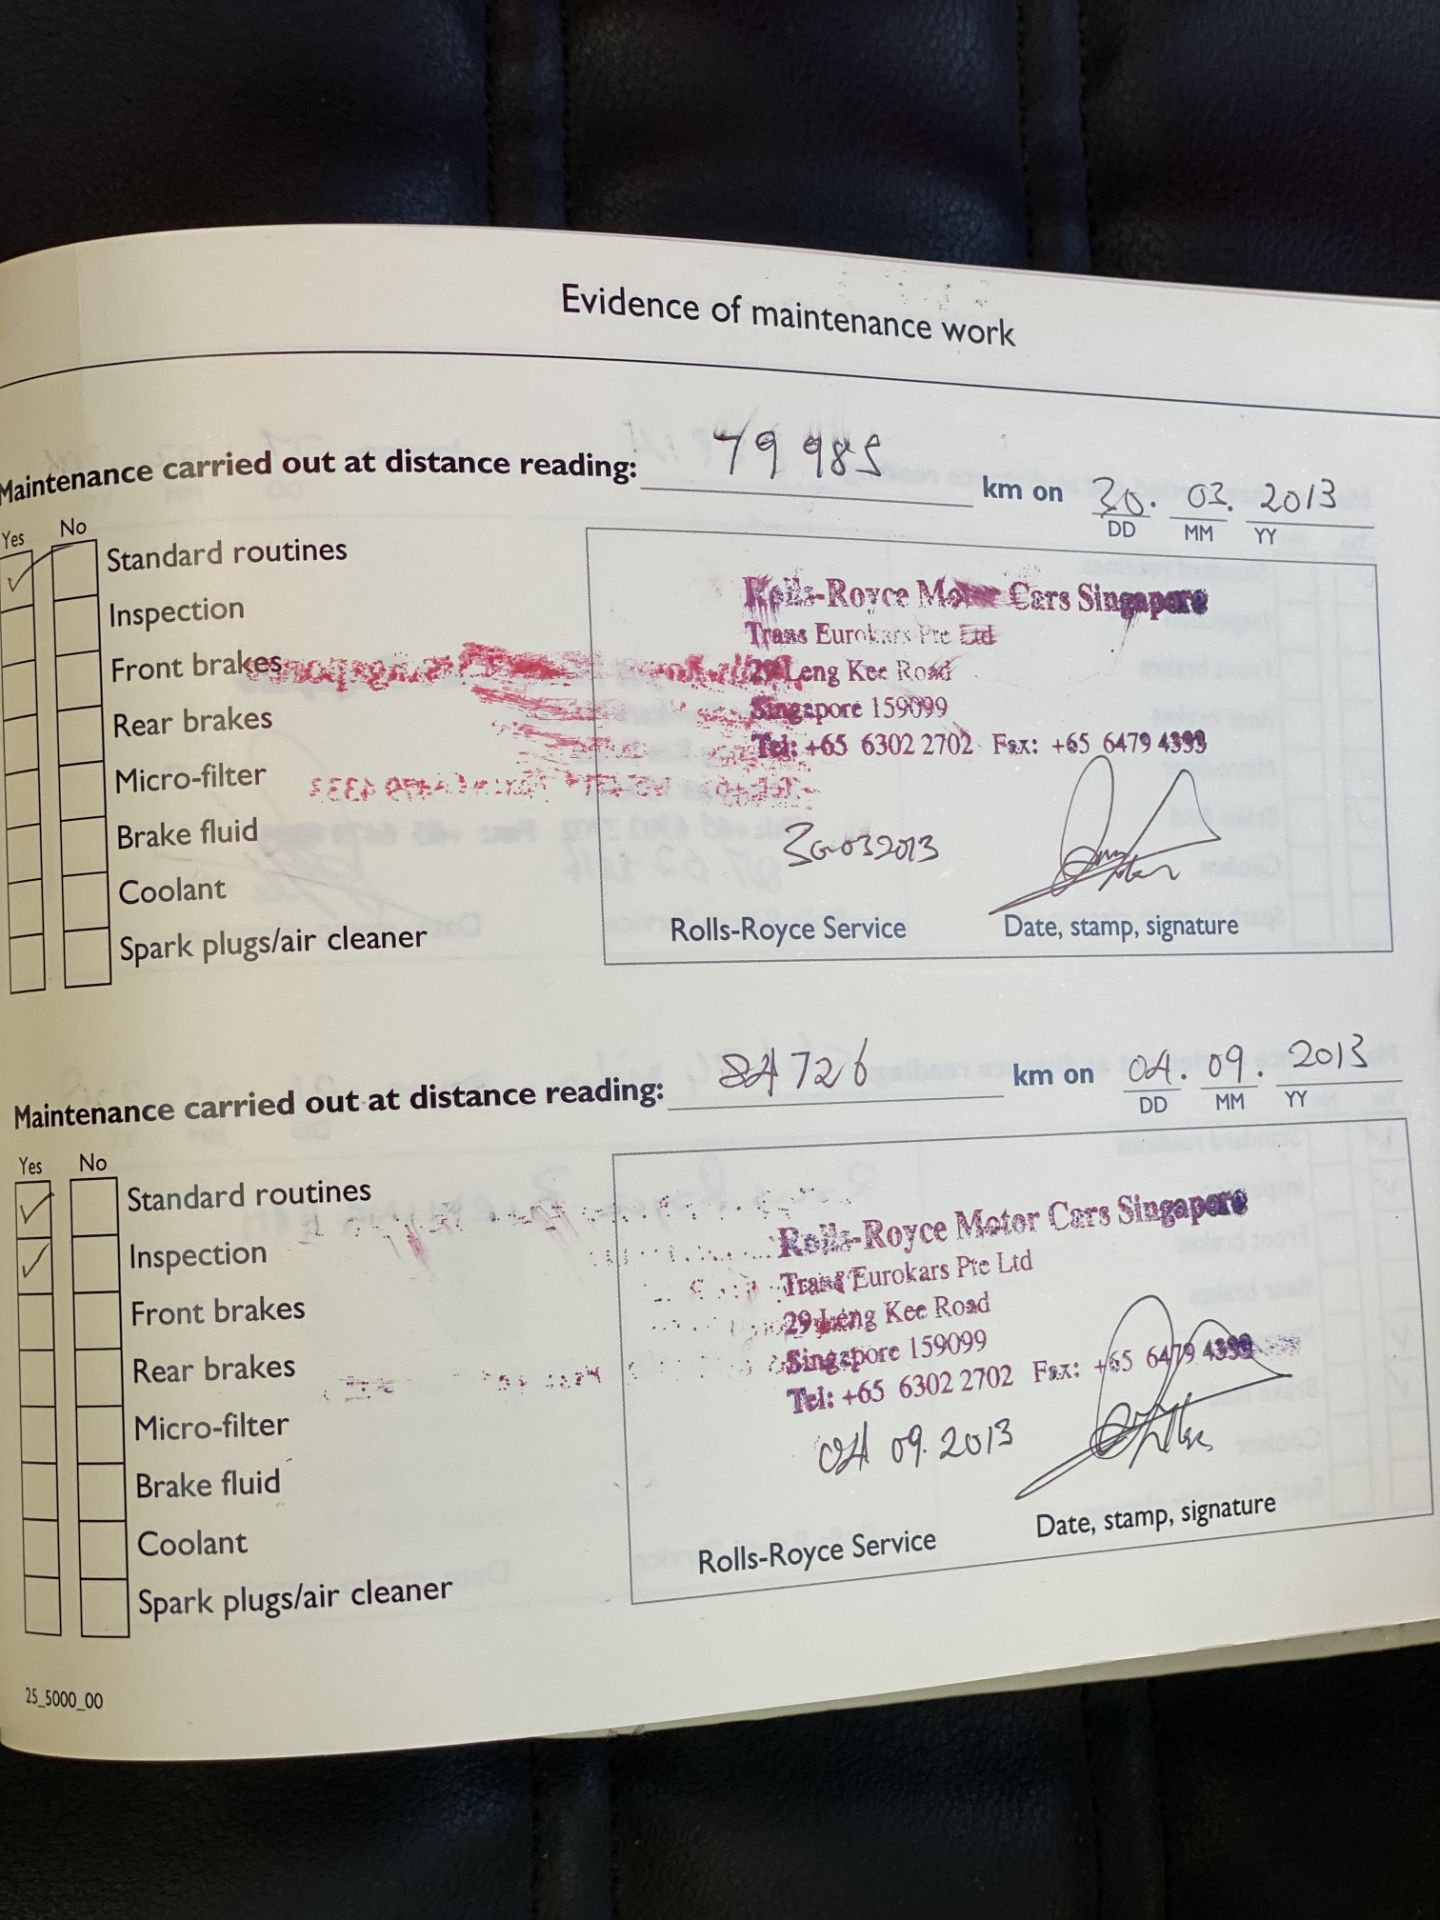 Evidence of maintenance work
Maintenance carried out at distance reading: 79 985 km on 30. 03. 2013
DD MM YY
Yes No
Standard routines
Inspection
Front brakes
Rear brakes
Micro-filter
Brake fluid
Coolant
Spark plugs/air cleaner
Rolls-Royce Motor Cars Singapore
Trans Eurokars Pte Ltd
29 Leng Kee Road
Singapore 159099
Tel: +65 6302 2702 Fax: +65 6479 4333
30 03 2013
Rolls-Royce Service Date, stamp, signature
Maintenance carried out at distance reading: 84 726 km on 04. 09. 2013
DD MM YY
Yes No
Standard routines
Inspection
Front brakes
Rear brakes
Micro-filter
Brake fluid
Coolant
Spark plugs/air cleaner
Rolls-Royce Motor Cars Singapore
Trans Eurokars Pte Ltd
29 Leng Kee Road
Singapore 159099
Tel: +65 6302 2702 Fax: +65 6479 4333
04 09. 2013
Rolls-Royce Service Date, stamp, signature
25_5000_00